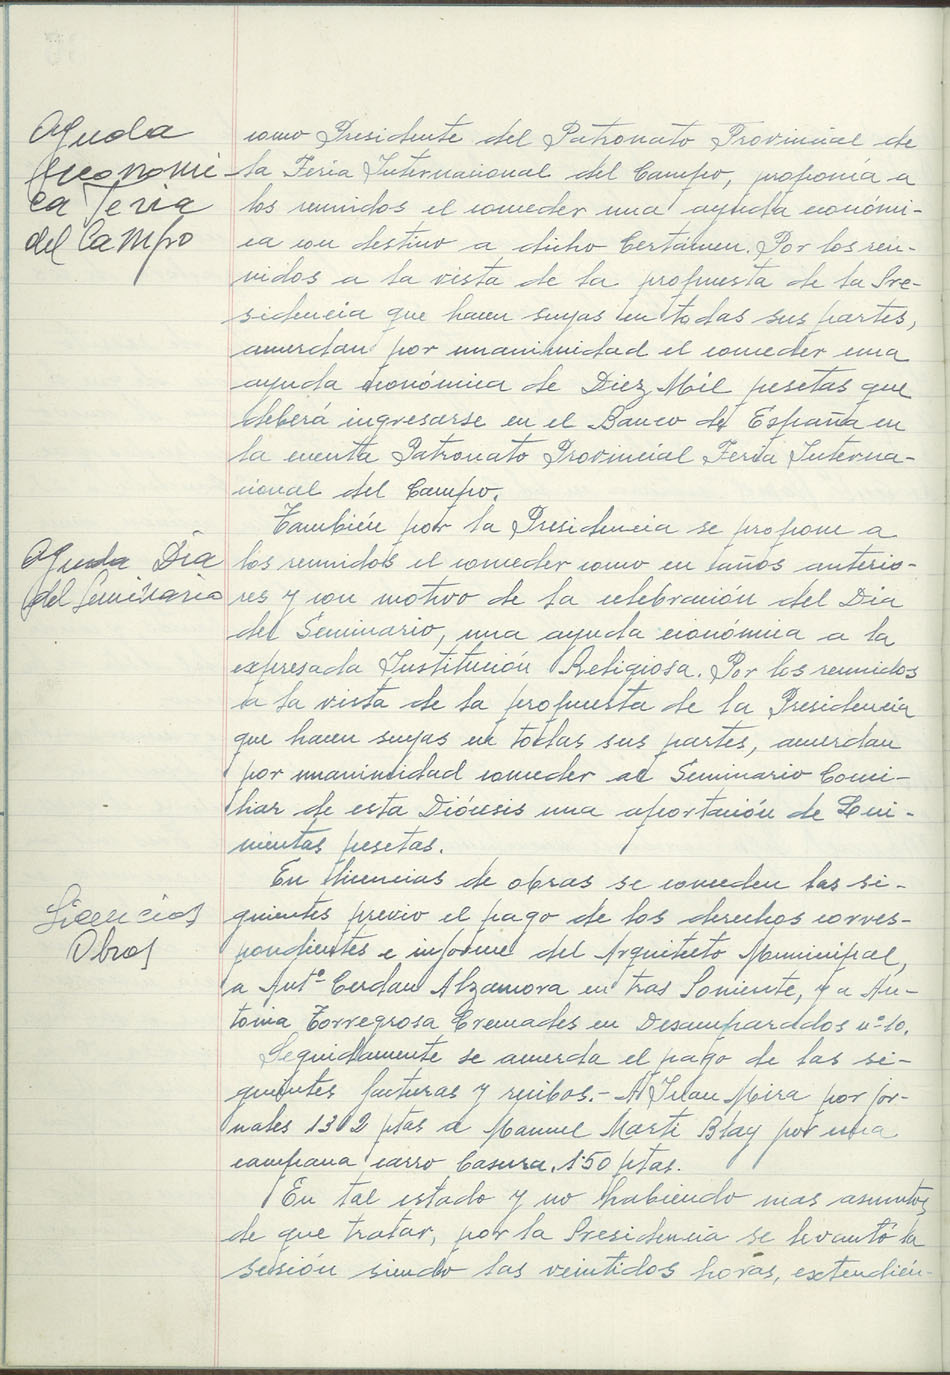 Ayuda
Economi-
ca Feria
del Campo
como Presidente del Patronato Provincial de
la Feria Internacional del Campo, proponía a
los reunidos el conceder una ayuda económi-
ca con destino a dicho Certámen. Por los reu-
nidos a la vista de la propuesta de la Pre-
sidencia que hacen suyas en todas sus partes,
acuerdan por unanimidad el conceder una
ayuda económica de Diez Mil pesetas que
deberá ingresarse en el Banco de España en
la cuenta Patronato Provincial Feria Interna-
cional del Campo.
Ayuda Dia
del Seminario
También por la Presidencia se propone a
los reunidos el conceder como en años anterio-
res y con motivo de la celebración del Dia
del Seminario, una ayuda económica a la
expresada Institución Religiosa. Por los reunidos
a la vista de la propuesta de la Presidencia
que hacen suyas en todas sus partes, acuerdan
por unanimidad conceder al Seminario Conci-
liar de esta Diócesis una aportación de Qui-
nientas pesetas.
Licencias
Obras
En licencias de obras se conceden las si-
guientes previo el pago de los derechos corres-
pondientes e informe del Arquitecto Municipal,
a Antº Cerdan Alzamora en tras Poniente, y a An-
tonia Torregrosa Cremades en Desamparados nº 10.
Seguidamente se acuerda el pago de las si-
guientes facturas y recibos.- A Juan Mira por jor-
nales 1302 ptas a Manuel Marti Blay por una
campana carro basura. 150 ptas.
En tal estado y no habiendo mas asuntos
de que tratar, por la Presidencia se levantó la
sesión siendo las veintidos horas, extendién-